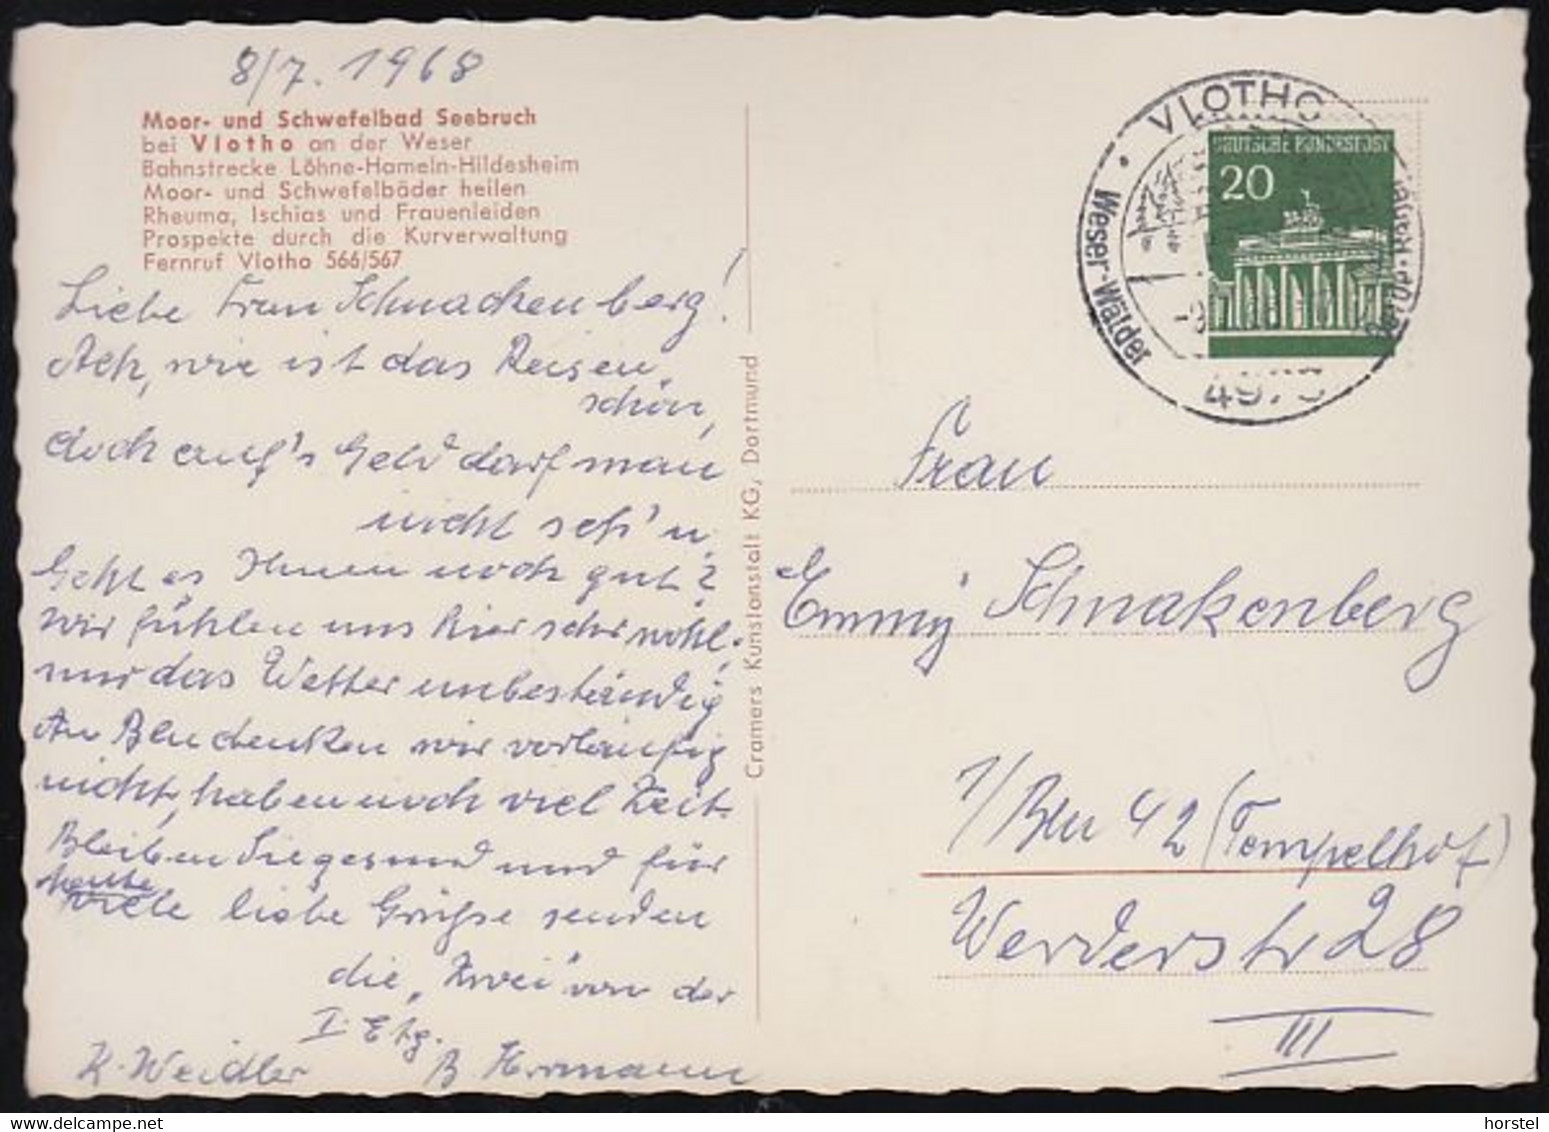 8/7. 1968
Moor- und Schwefelbad Seebruch
bei Vlotho an der Weser
Bahnstrecke Löhne-Hameln-Hildesheim
Moor- und Schwefelbäder heilen
Rheuma, Ischias und Frauenleiden
Prospekte durch die Kurverwaltung
Fernruf Vlotho 566/567
Liebe Frau Schnackenberg!
Ach, wie ist das Reisen
schön,
doch auf's Geld darf man
nicht seh'n.
Geht es Ihnen noch gut?
Wir fühlen uns hier sehr wohl,
nur das Wetter unbeständig
An Bln denken wir vorläufig
nicht, haben noch viel Zeit.
Bleiben Sie gesund und für
heute
viele liebe Grüße senden
die „Zwei" von der
I. Etg.
K. Weidler B Herrmann
Cramers Kunstanstalt KG, Dortmund
VLOTHO
Weser-Wälder
DEUTSCHE BUNDESPOST
20
Frau
Emmy Schnakenberg
1/Bln 42 (Tempelhof)
Werderstr 28
III
horstel
www.delcampe.net